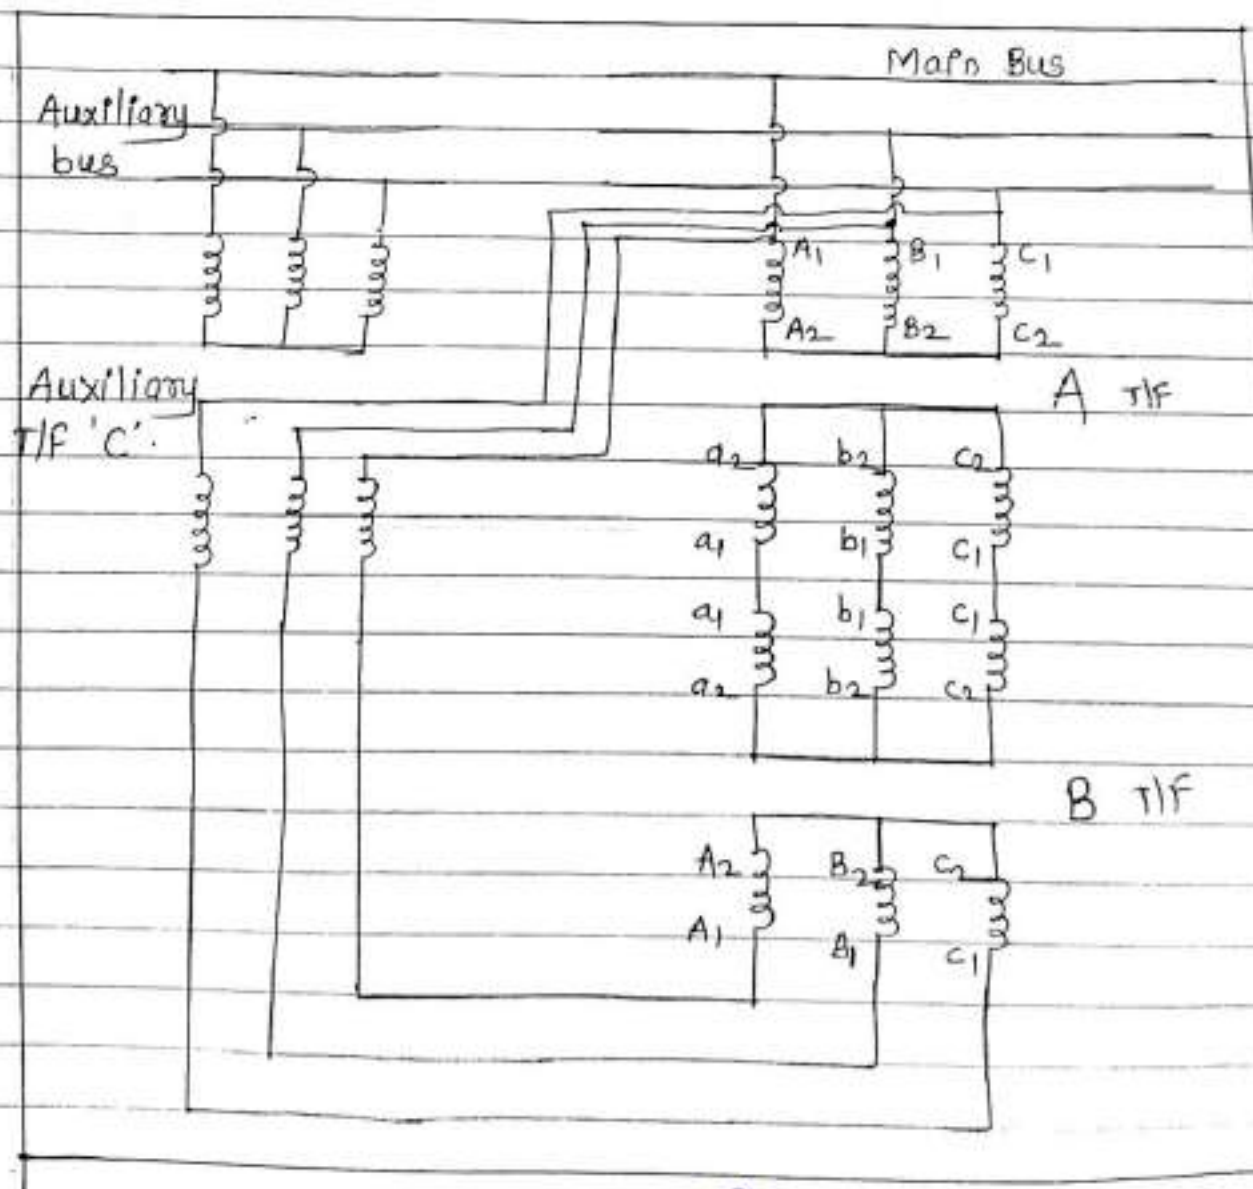 Main Bus
Auxiliary
bus
A1 B1 C1
A2 B2 C2
Auxiliary
T/F 'C'.
A T/F
a2 b2 C2
a1 b1 C1
a1 b1 C1
a2 b2 C2
B T/F
A2 B2 C2
A1 B1 C1